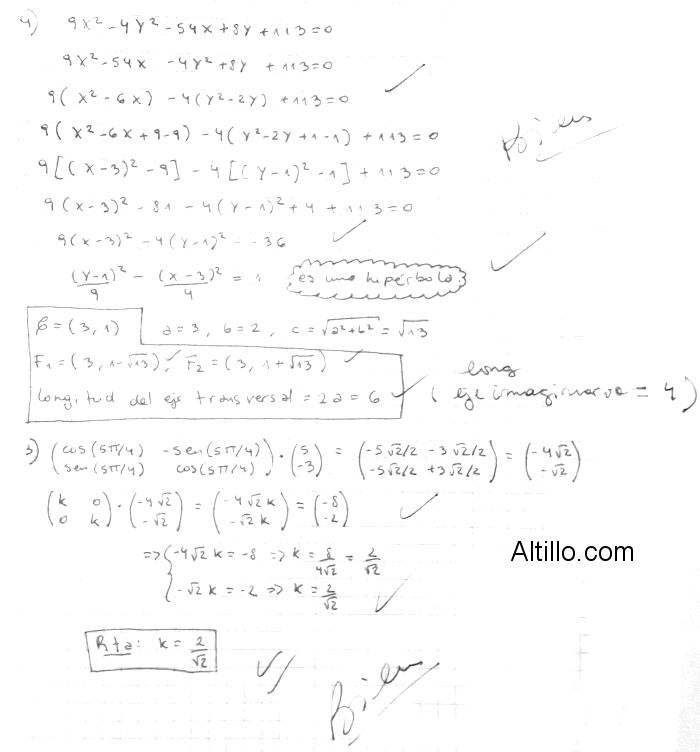 4) 9x² - 4y² - 54x + 8y + 113 = 0
9x² - 54x - 4y² + 8y + 113 = 0
9(x² - 6x) - 4(y² - 2y) + 113 = 0
9(x² - 6x + 9 - 9) - 4(y² - 2y + 1 - 1) + 113 = 0
Bien
9[(x - 3)² - 9] - 4[(y - 1)² - 1] + 113 = 0
9(x - 3)² - 81 - 4(y - 1)² + 4 + 113 = 0
9(x - 3)² - 4(y - 1)² = -36
(y - 1)²/9 - (x - 3)²/4 = 1 es una hipérbola
C = (3, 1) a = 3, b = 2, c = √(a² + b²) = √13
F₁ = (3, 1 - √13), F₂ = (3, 1 + √13)
longitud del eje transversal = 2a = 6
long
(eje imaginario = 4)
3) (cos(5π/4) -sen(5π/4)) · (5) = (-5√2/2 - 3√2/2) = (-4√2)
(sen(5π/4) cos(5π/4)) (-3) (-5√2/2 + 3√2/2) (-√2)
(k 0) · (-4√2) = (-4√2 k) = (-8)
(0 k) (-√2) (-√2 k) (-2)
=> { -4√2 k = -8 => k = 8/4√2 = 2/√2
-√2 k = -2 => k = 2/√2
Altillo.com
Rta: k = 2/√2
Bien